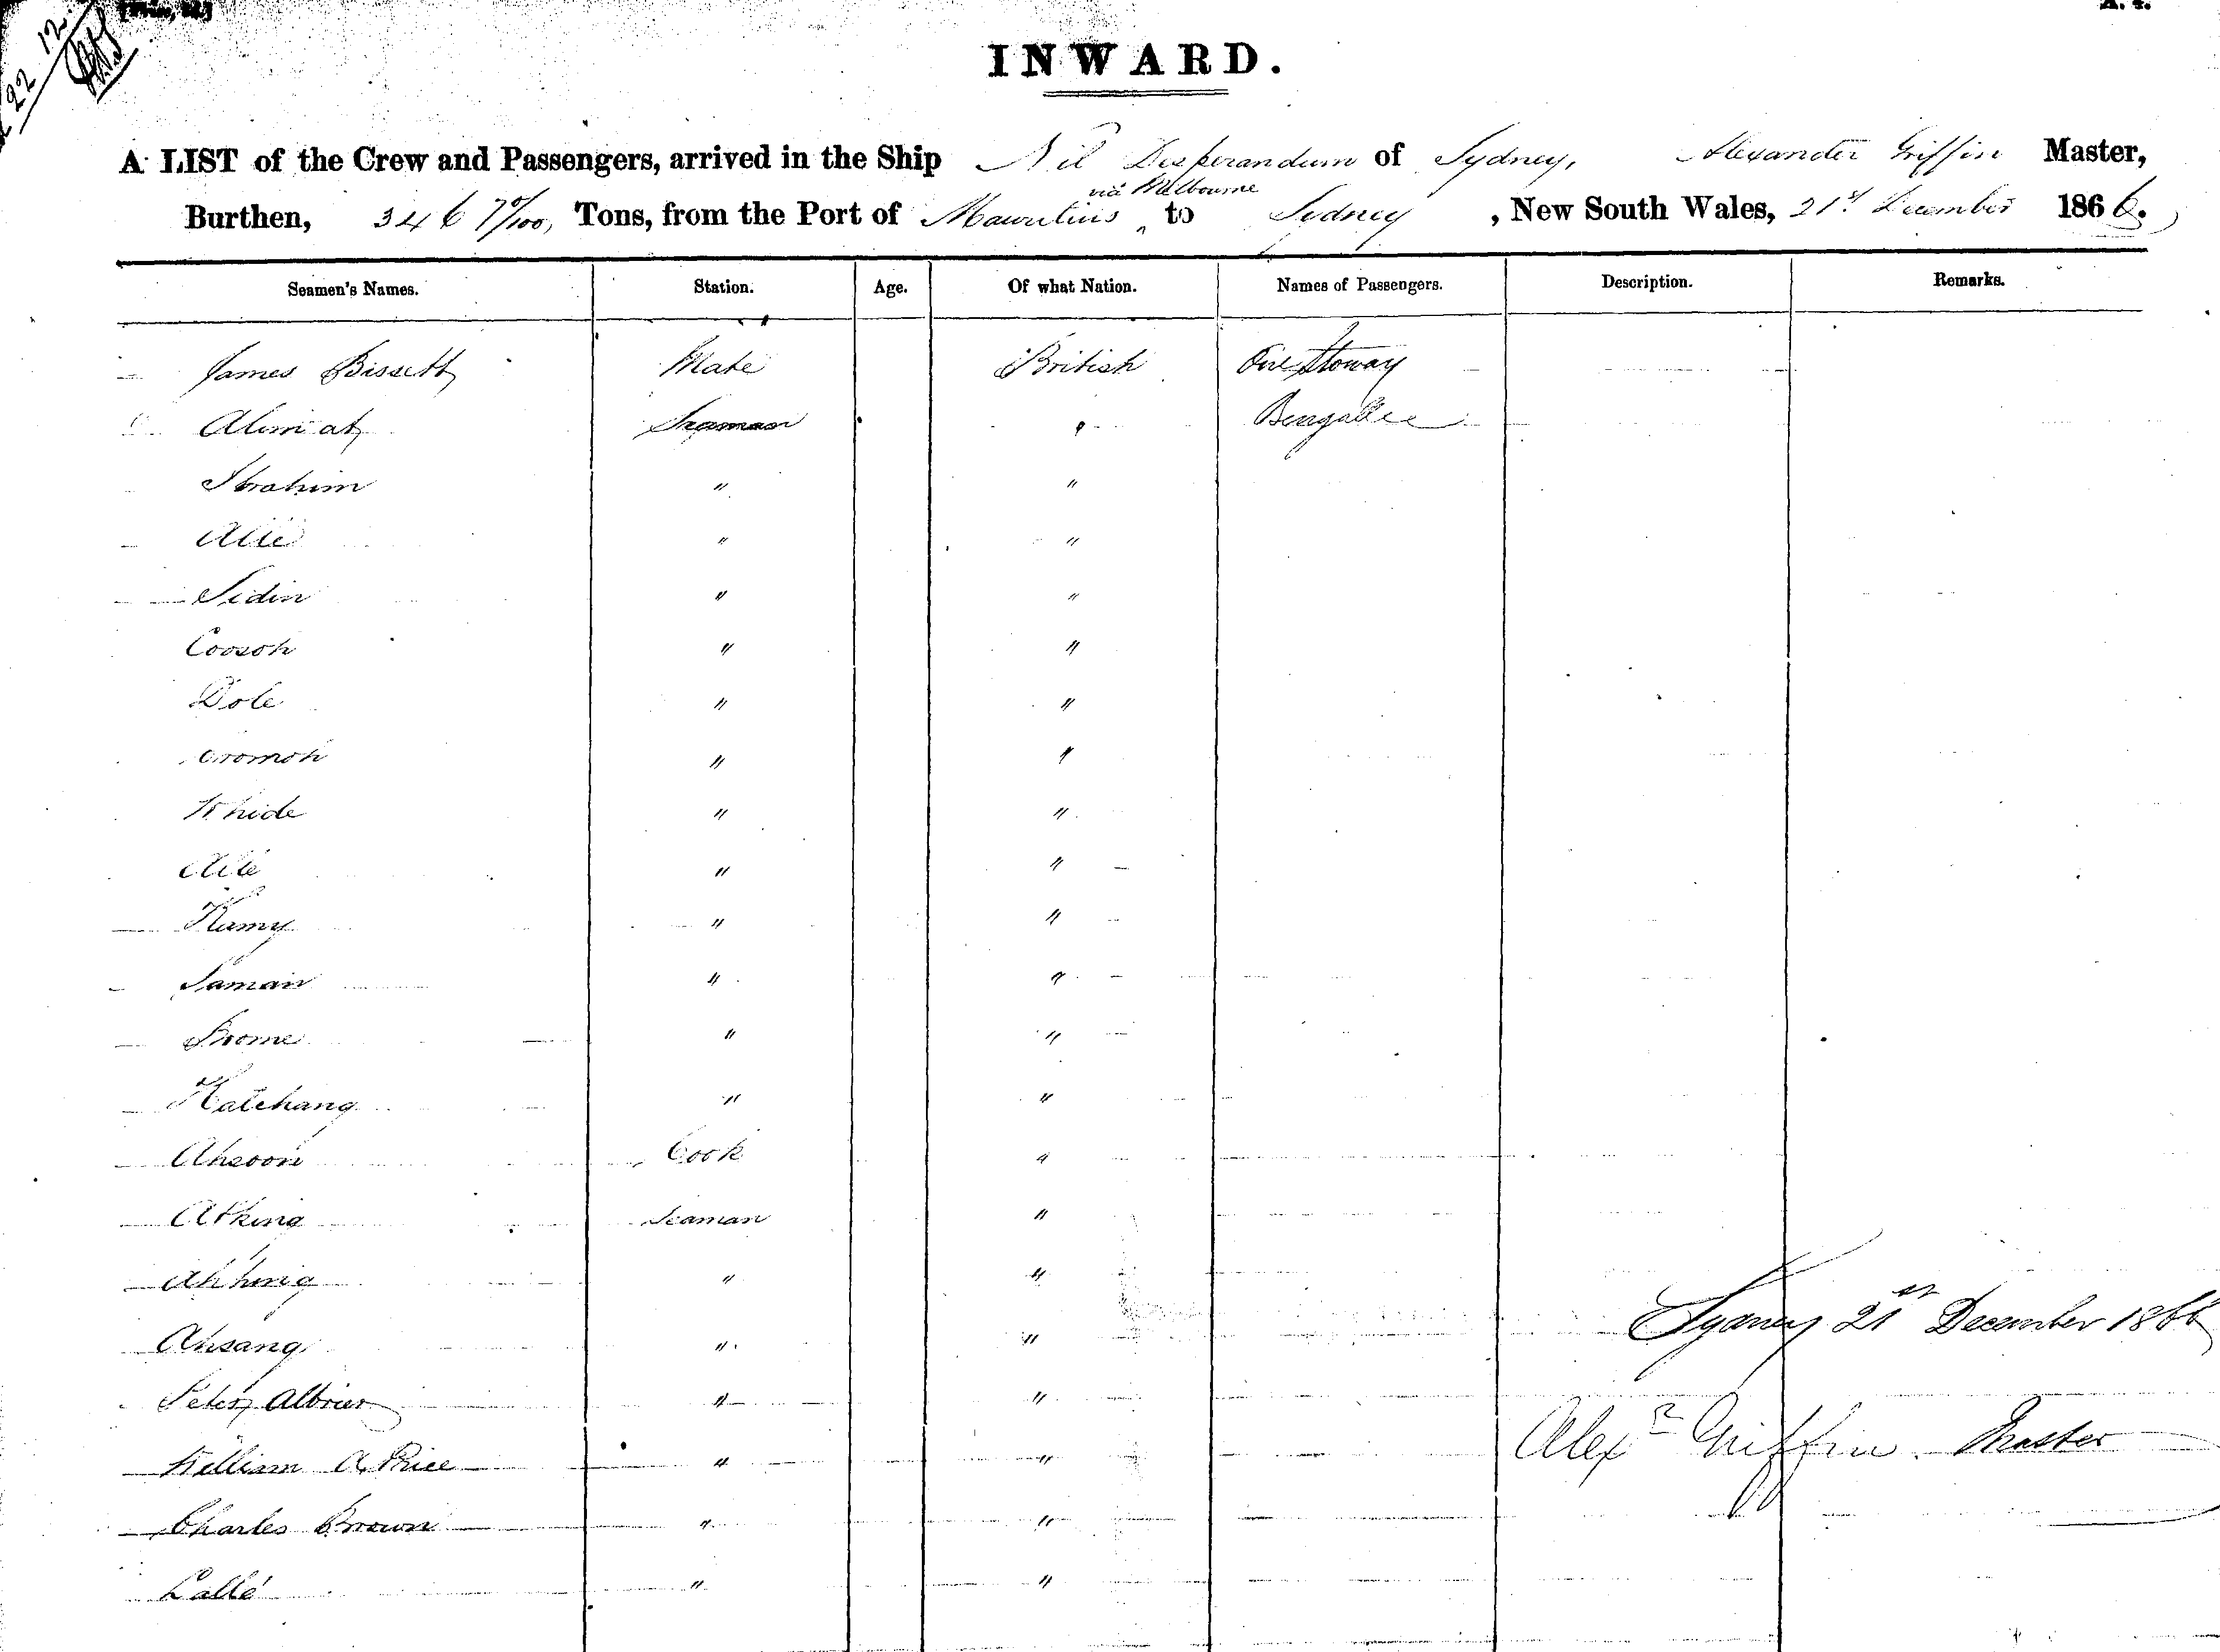 22 12
INWARD.
A LIST of the Crew and Passengers, arrived in the Ship Nil Desperandum of Sydney, Alexander Griffin Master,
via Melbourne
Burthen, 346 7/100, Tons, from the Port of Mauritius to Sydney, New South Wales, 21st December 1866.
Seamen's Names. Station. Age. Of what Nation. Names of Passengers. Description. Remarks.
James Bissett Mate British One Stoway
Alimat Seaman " Bengallee
Ibrahim " "
Allie " "
Sidin " "
Coosoh " "
Dole " "
Cromoh " "
" "
" "
Ramy " "
Saman " "
" "
Katchang " "
Ahsoon Cook "
Atking Seaman "
" "
Sydney 21st December 1866
Ahsang " "
Peter Albrier " "
Alexr Griffin. Master
William A. Price " "
Charles Brown " "
Lallé " "